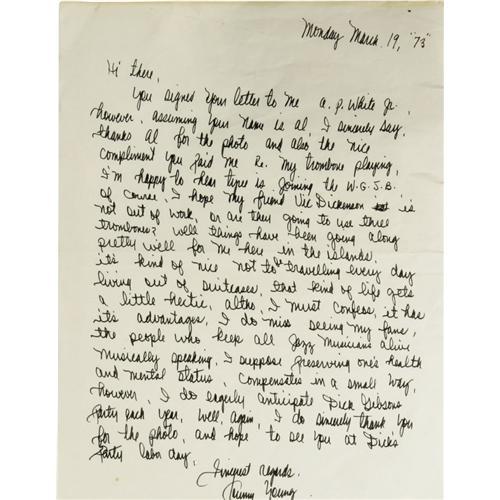 Monday March 19, "73"
Hi there,
You signed your letter to me A.P. White Jr.
however, assuming your name is Al, I sincerely say,
thanks Al for the photo and also the nice
compliment you paid me re. my trombone playing,
I'm happy to hear tyree is joining the W.G.J.B.
of course, I hope my friend Vic Dickenson is
not out of work, or are they going to use three
trombones? Well things have been going along
pretty well for me here in the islands.
it's kind of nice not to be travelling every day
living out of suitcases, that kind of life gets
a little hectic, altho, I must confess, it has
it's advantages, I do miss seeing my fans,
the people who keep all Jazz musicians alive
musically speaking, I suppose preserving one's health
and mental status, compensates in a small way,
however, I do eagerly anticipate Dick Gibsons
Party each year, well, again, I do sincerely thank you
for the photo, and hope to see you at Dick's
Party labor day,
Finest regards,
Trummy Young